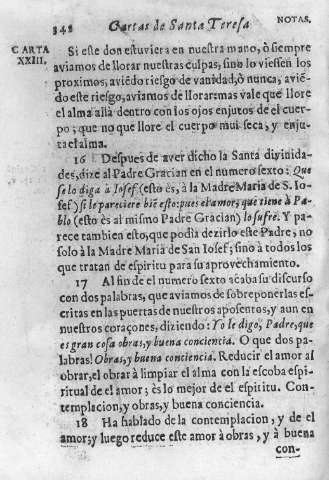 342 Cartas de Santa Teresa NOTAS.
CARTA
XXIII.
Si este don estuviera en nuestra mano, ò siempre
aviamos de llorar nuestras culpas, sino lo viessen los
proximos, aviẽdo riesgo de vanidad, ò nunca, aviẽ-
do este riesgo, aviamos de llorar: mas vale que llore
el alma allà dentro con los ojos enjutos de el cuer-
po; que no que llore el cuerpo mui seca, y enju-
ta el alma.
16 Despues de aver dicho la Santa divinida-
des, dize al Padre Gracian en el numero sexto: Que
se lo diga à Iosef (esto es, à la Madre Maria de S. Io-
sef) si le pareciere biẽ esto: pues el amor, que tiene à Pa-
blo (esto es al mismo Padre Gracian) lo sufre. Y pa-
rece tambien esto, que podia dezirlo este Padre, no
solo à la Madre Maria de San Iosef; sino à todos los
que tratan de espiritu para su aprovechamiento.
17 Al fin de el numero sexto acaba su discurso
con dos palabras, que aviamos de sobreponerlas es-
critas en las puertas de nuestros aposentos, y aun en
nuestros coraçones, diziendo: Yo le digo, Padre, que
es gran cosa obras, y buena conciencia. O que dos pa-
labras! Obras, y buena conciencia. Reducir el amor al
obrar, el obrar à limpiar el alma con la escoba espiri-
tual de el amor; es lo mejor de el espiritu. Con-
templacion, y obras, y buena conciencia.
18 Ha hablado de la contemplacion, y de el
amor; y luego reduce este amor à obras, y à buena
con-